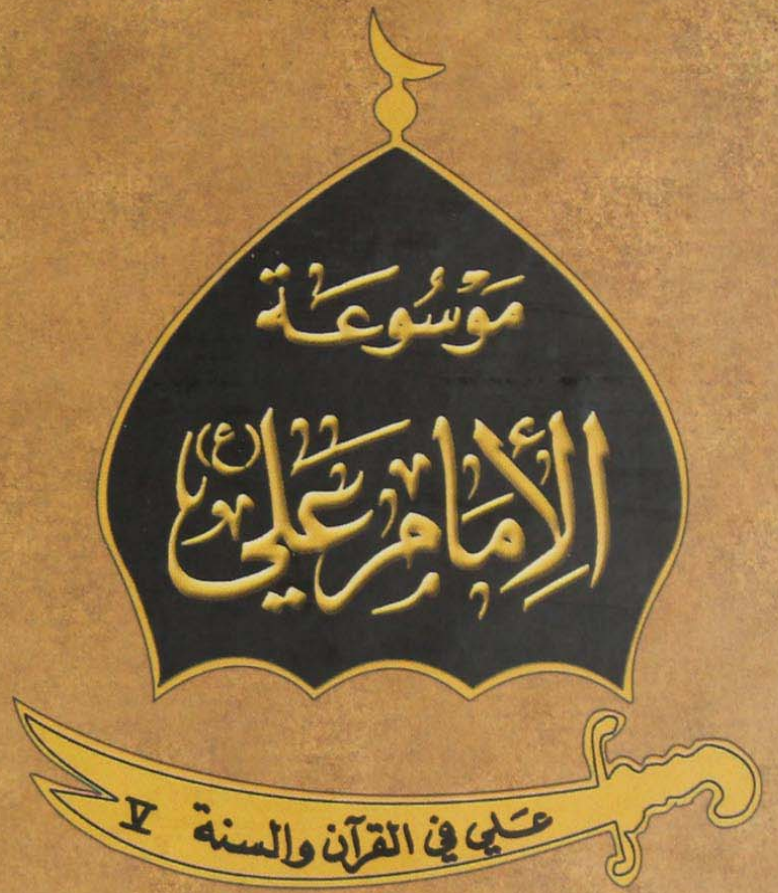 مَوْسُوعَة
الإِمَام عَلي (ع)
عَلي في القرآن والسنة V